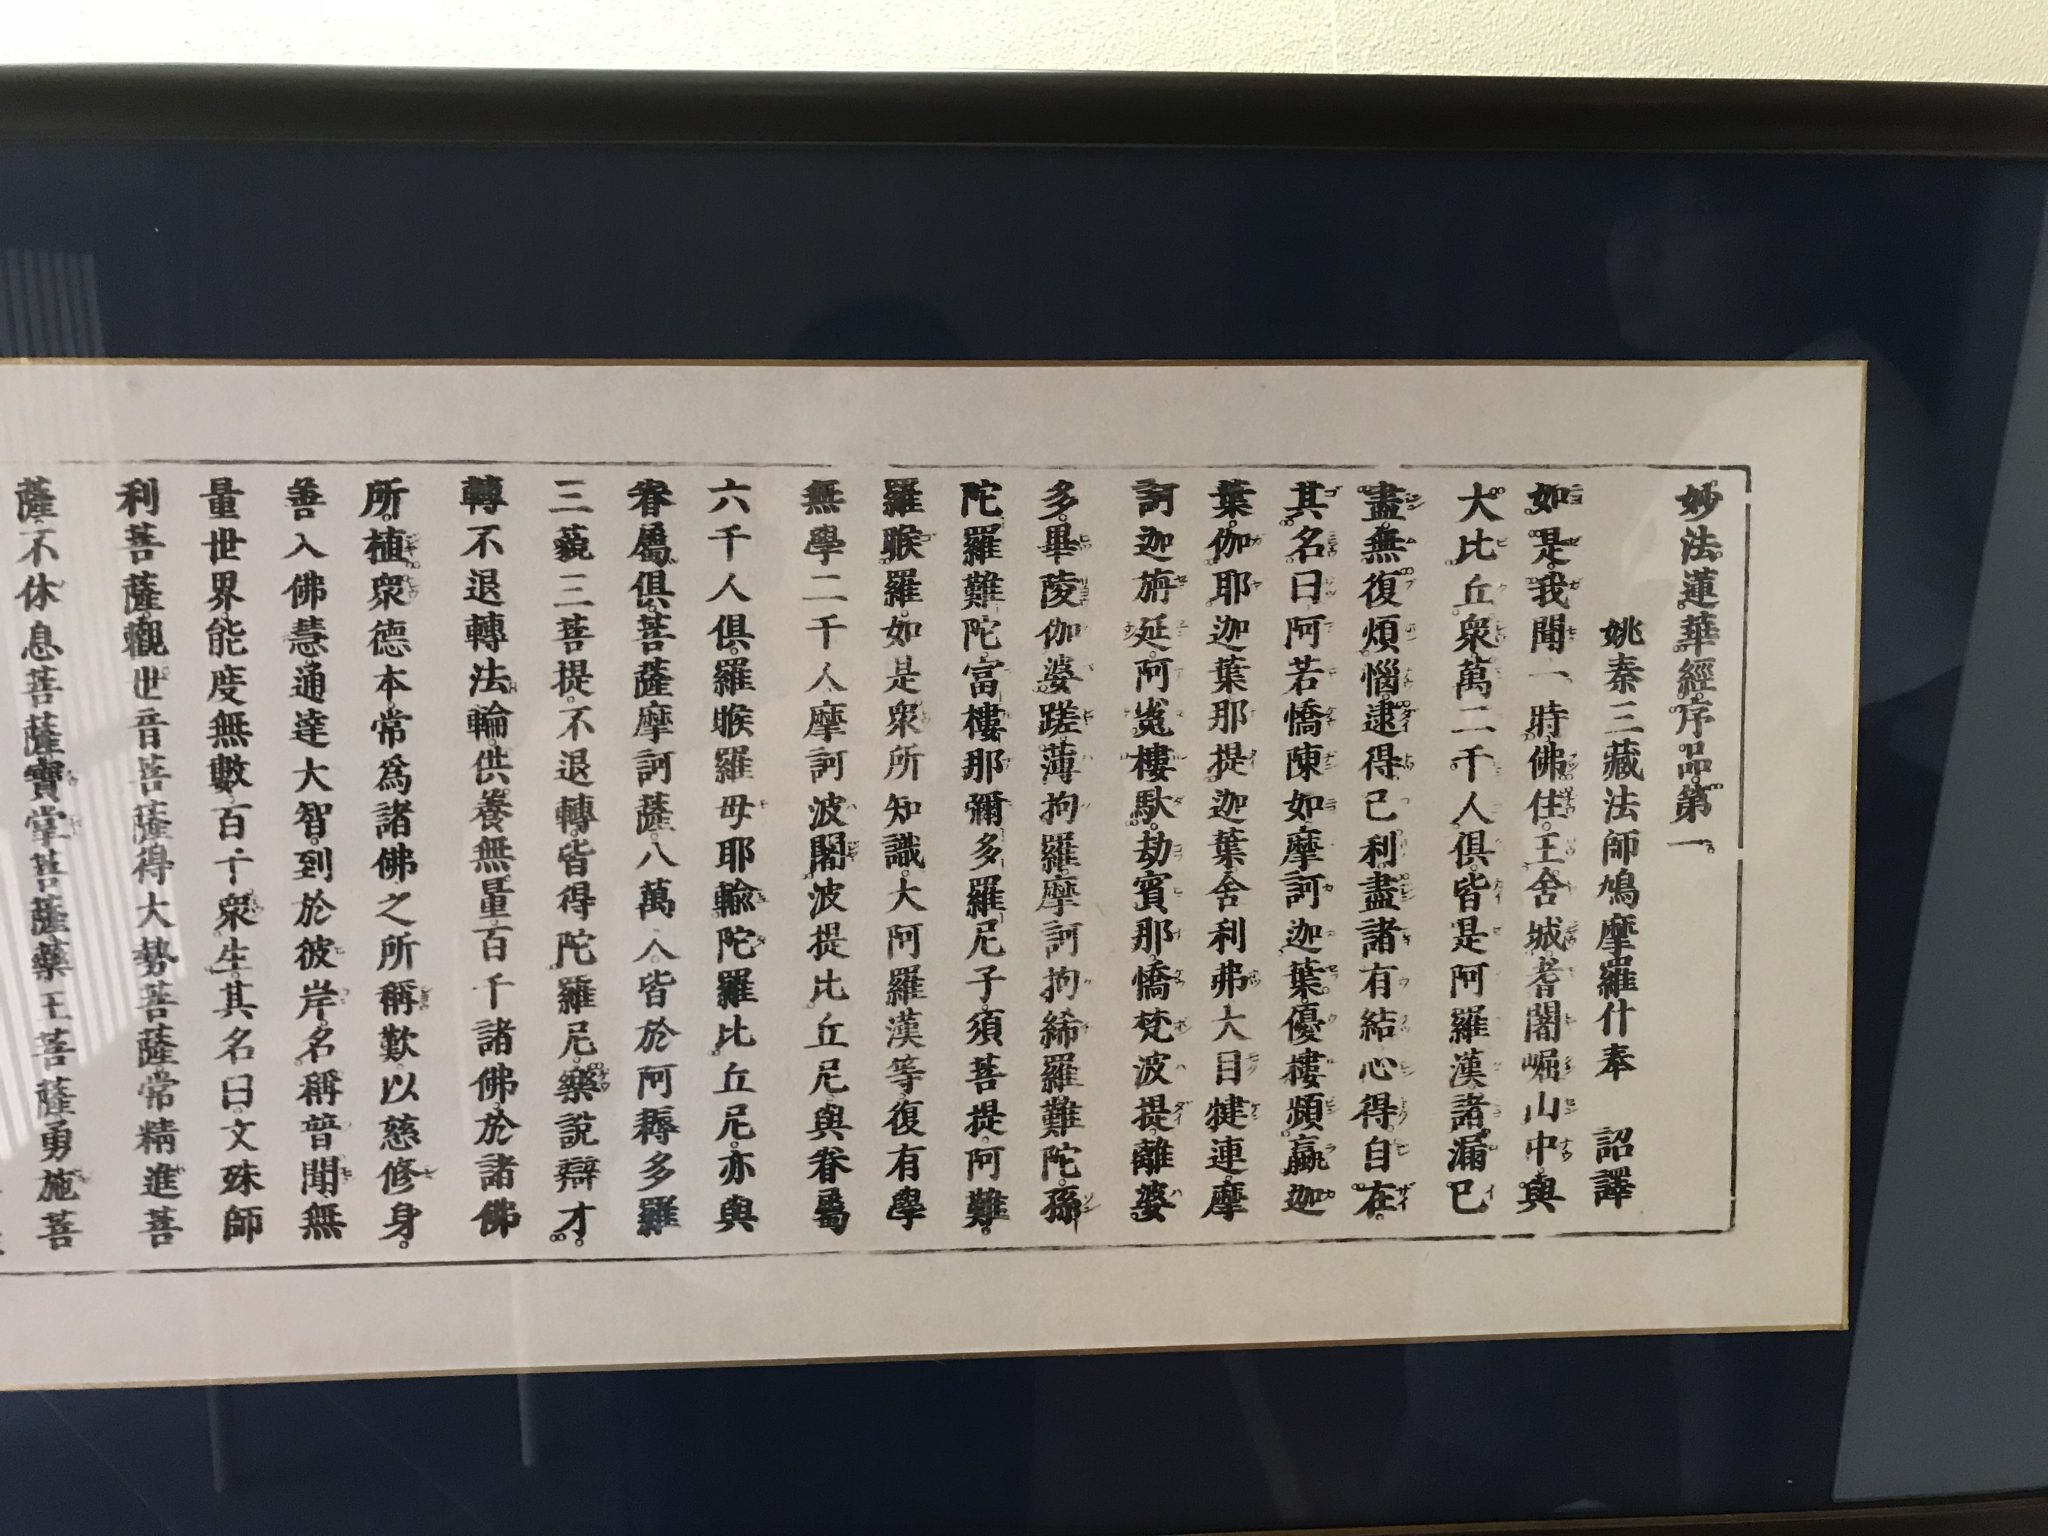 妙法蓮華經序品第一
姚秦三藏法師鳩摩羅什奉　詔譯
如是我聞一時佛住王舍城耆闍崛山中與
大比丘衆萬二千人俱皆是阿羅漢諸漏已
盡無復煩惱逮得己利盡諸有結心得自在
其名曰阿若憍陳如摩訶迦葉優樓頻蠃迦
葉伽耶迦葉那提迦葉舍利弗大目犍連摩
訶迦旃延阿㝹樓馱劫賓那憍梵波提離婆
多畢陵伽婆蹉薄拘羅摩訶拘絺羅難陀孫
陀羅難陀富樓那彌多羅尼子須菩提阿難
羅睺羅如是衆所知識大阿羅漢等復有學
無學二千人摩訶波闍波提比丘尼與眷屬
六千人俱羅睺羅母耶輸陀羅比丘尼亦與
眷屬俱菩薩摩訶薩八萬人皆於阿耨多羅
三藐三菩提不退轉皆得陀羅尼樂說辯才
轉不退轉法輪供養無量百千諸佛於諸佛
所植衆德本常爲諸佛之所稱歎以慈修身
善入佛慧通達大智到於彼岸名稱普聞無
量世界能度無數百千衆生其名曰文殊師
利菩薩觀世音菩薩得大勢菩薩常精進菩
薩不休息菩薩寶掌菩薩藥王菩薩勇施菩